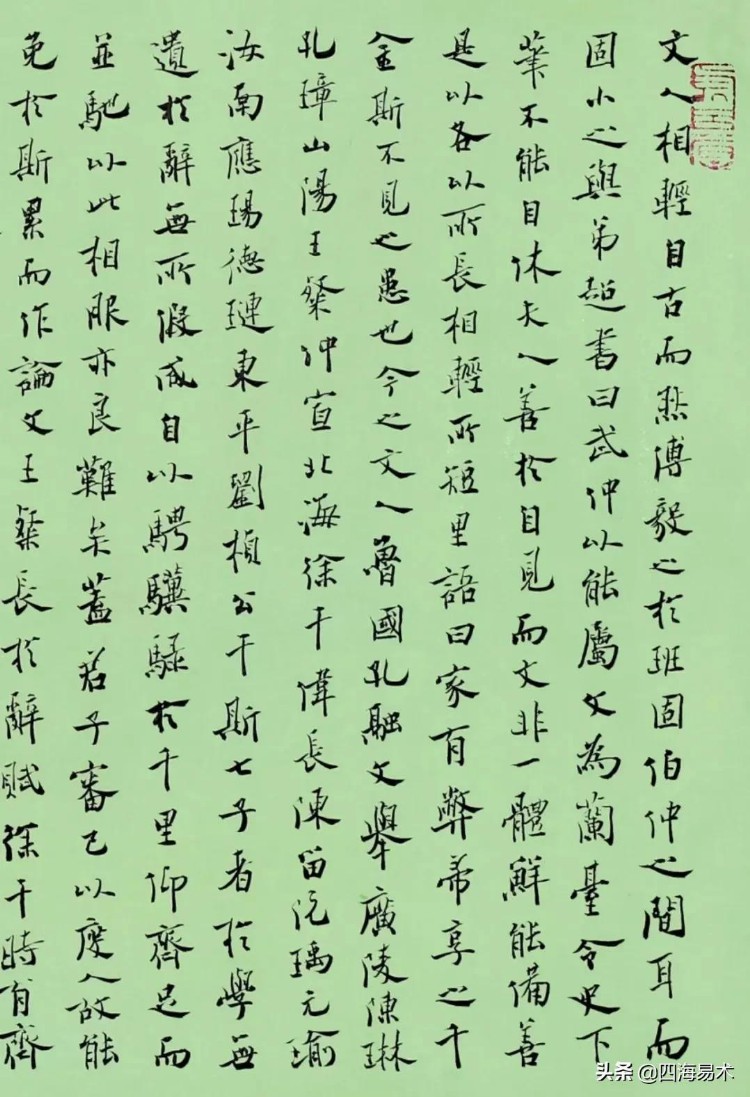 文人相輕自古而然傅毅之於班固伯仲之間耳而
固小之與弟超書曰武仲以能屬文為蘭臺令史下
筆不能自休夫人善於自見而文非一體鮮能備善
是以各以所長相輕所短里語曰家有弊帚享之千
金斯不見之患也今之文人魯國孔融文舉廣陵陳琳
孔璋山陽王粲仲宣北海徐干偉長陳留阮瑀元瑜
汝南應瑒德璉東平劉楨公干斯七子者於學無
遺於辭無所假咸自以騁驥騄於千里仰齊足而
並馳以此相服亦良難矣蓋君子審己以度人故能
免於斯累而作論文王粲長於辭賦徐干時有齊
头条 @四海易木